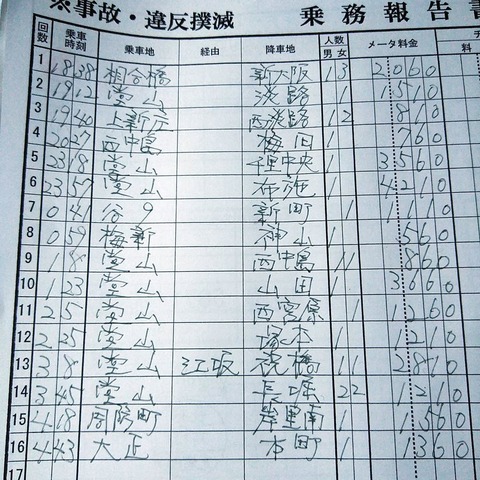 ※事故・違反撲滅 乗務報告書
回数 乗車時刻 乗車地 経由 降車地 人数 男 女 メータ料金 料
1 18 38 相合橋 新大阪 1 3 2060
2 19 12 堂山 淡路 1 1510
3 19 40 上新庄 西淡路 1 2 810
4 20 27 西中島 梅田 1 760
5 23 18 堂山 千里中央 1 3560
6 23 57 堂山 布施 1 4210
7 0 41 谷9 新町 1 1110
8 0 59 梅新 神山 1 560
9 1 8 堂山 西中島 1 1 860
10 1 23 堂山 山田 1 3660
11 2 5 堂山 西宮原 1 1260
12 2 25 堂山 塚本 1 1210
13 3 8 堂山 江坂 橋 1 1 2810
14 3 45 堂山 長堀 2 2 1210
15 4 18 周防町 岸里南 1 1560
16 4 43 大正 本町 1 1360
17